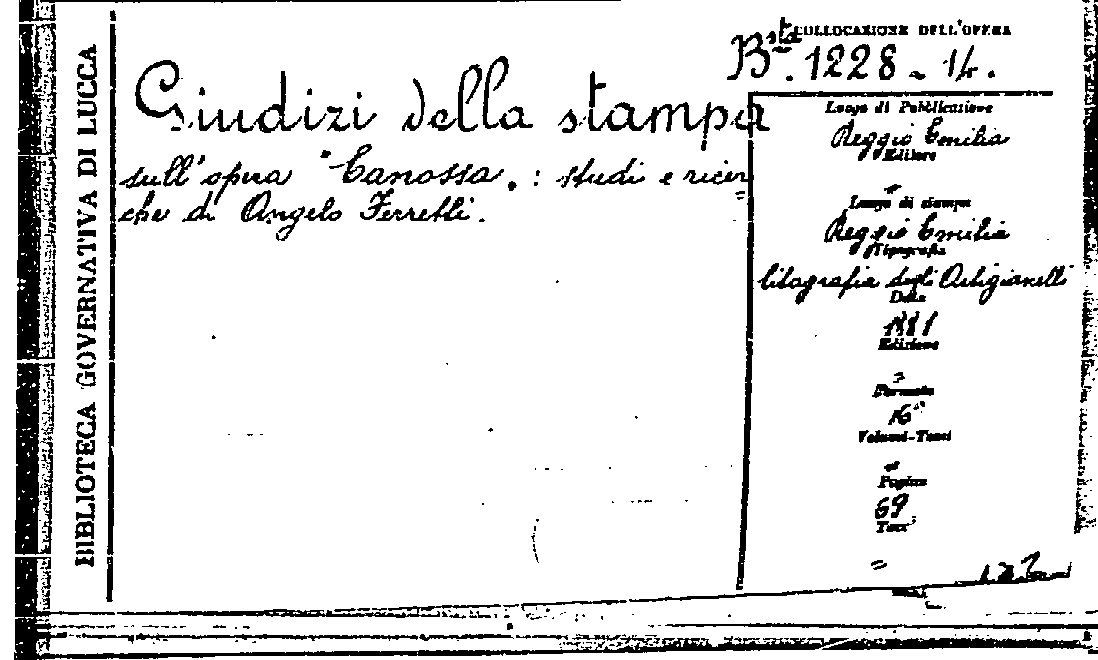 BIBLIOTECA GOVERNATIVA DI LUCCA
COLLOCAZIONE DELL'OPERA
Bsta. 1228 - 14.
Giudizi della stampa
sull'opera "Canossa„ : studi e ricer
che di Angelo Ferretti.
Luogo di Pubblicazione
Reggio Emilia
Editore
=
Luogo di stampa
Reggio Emilia
Tipografia
litografia degli Artigianelli
Data
1881
Edizione
=
Formato
16°
Volumi-Tomi
=
Pagine
69
Tav.
=